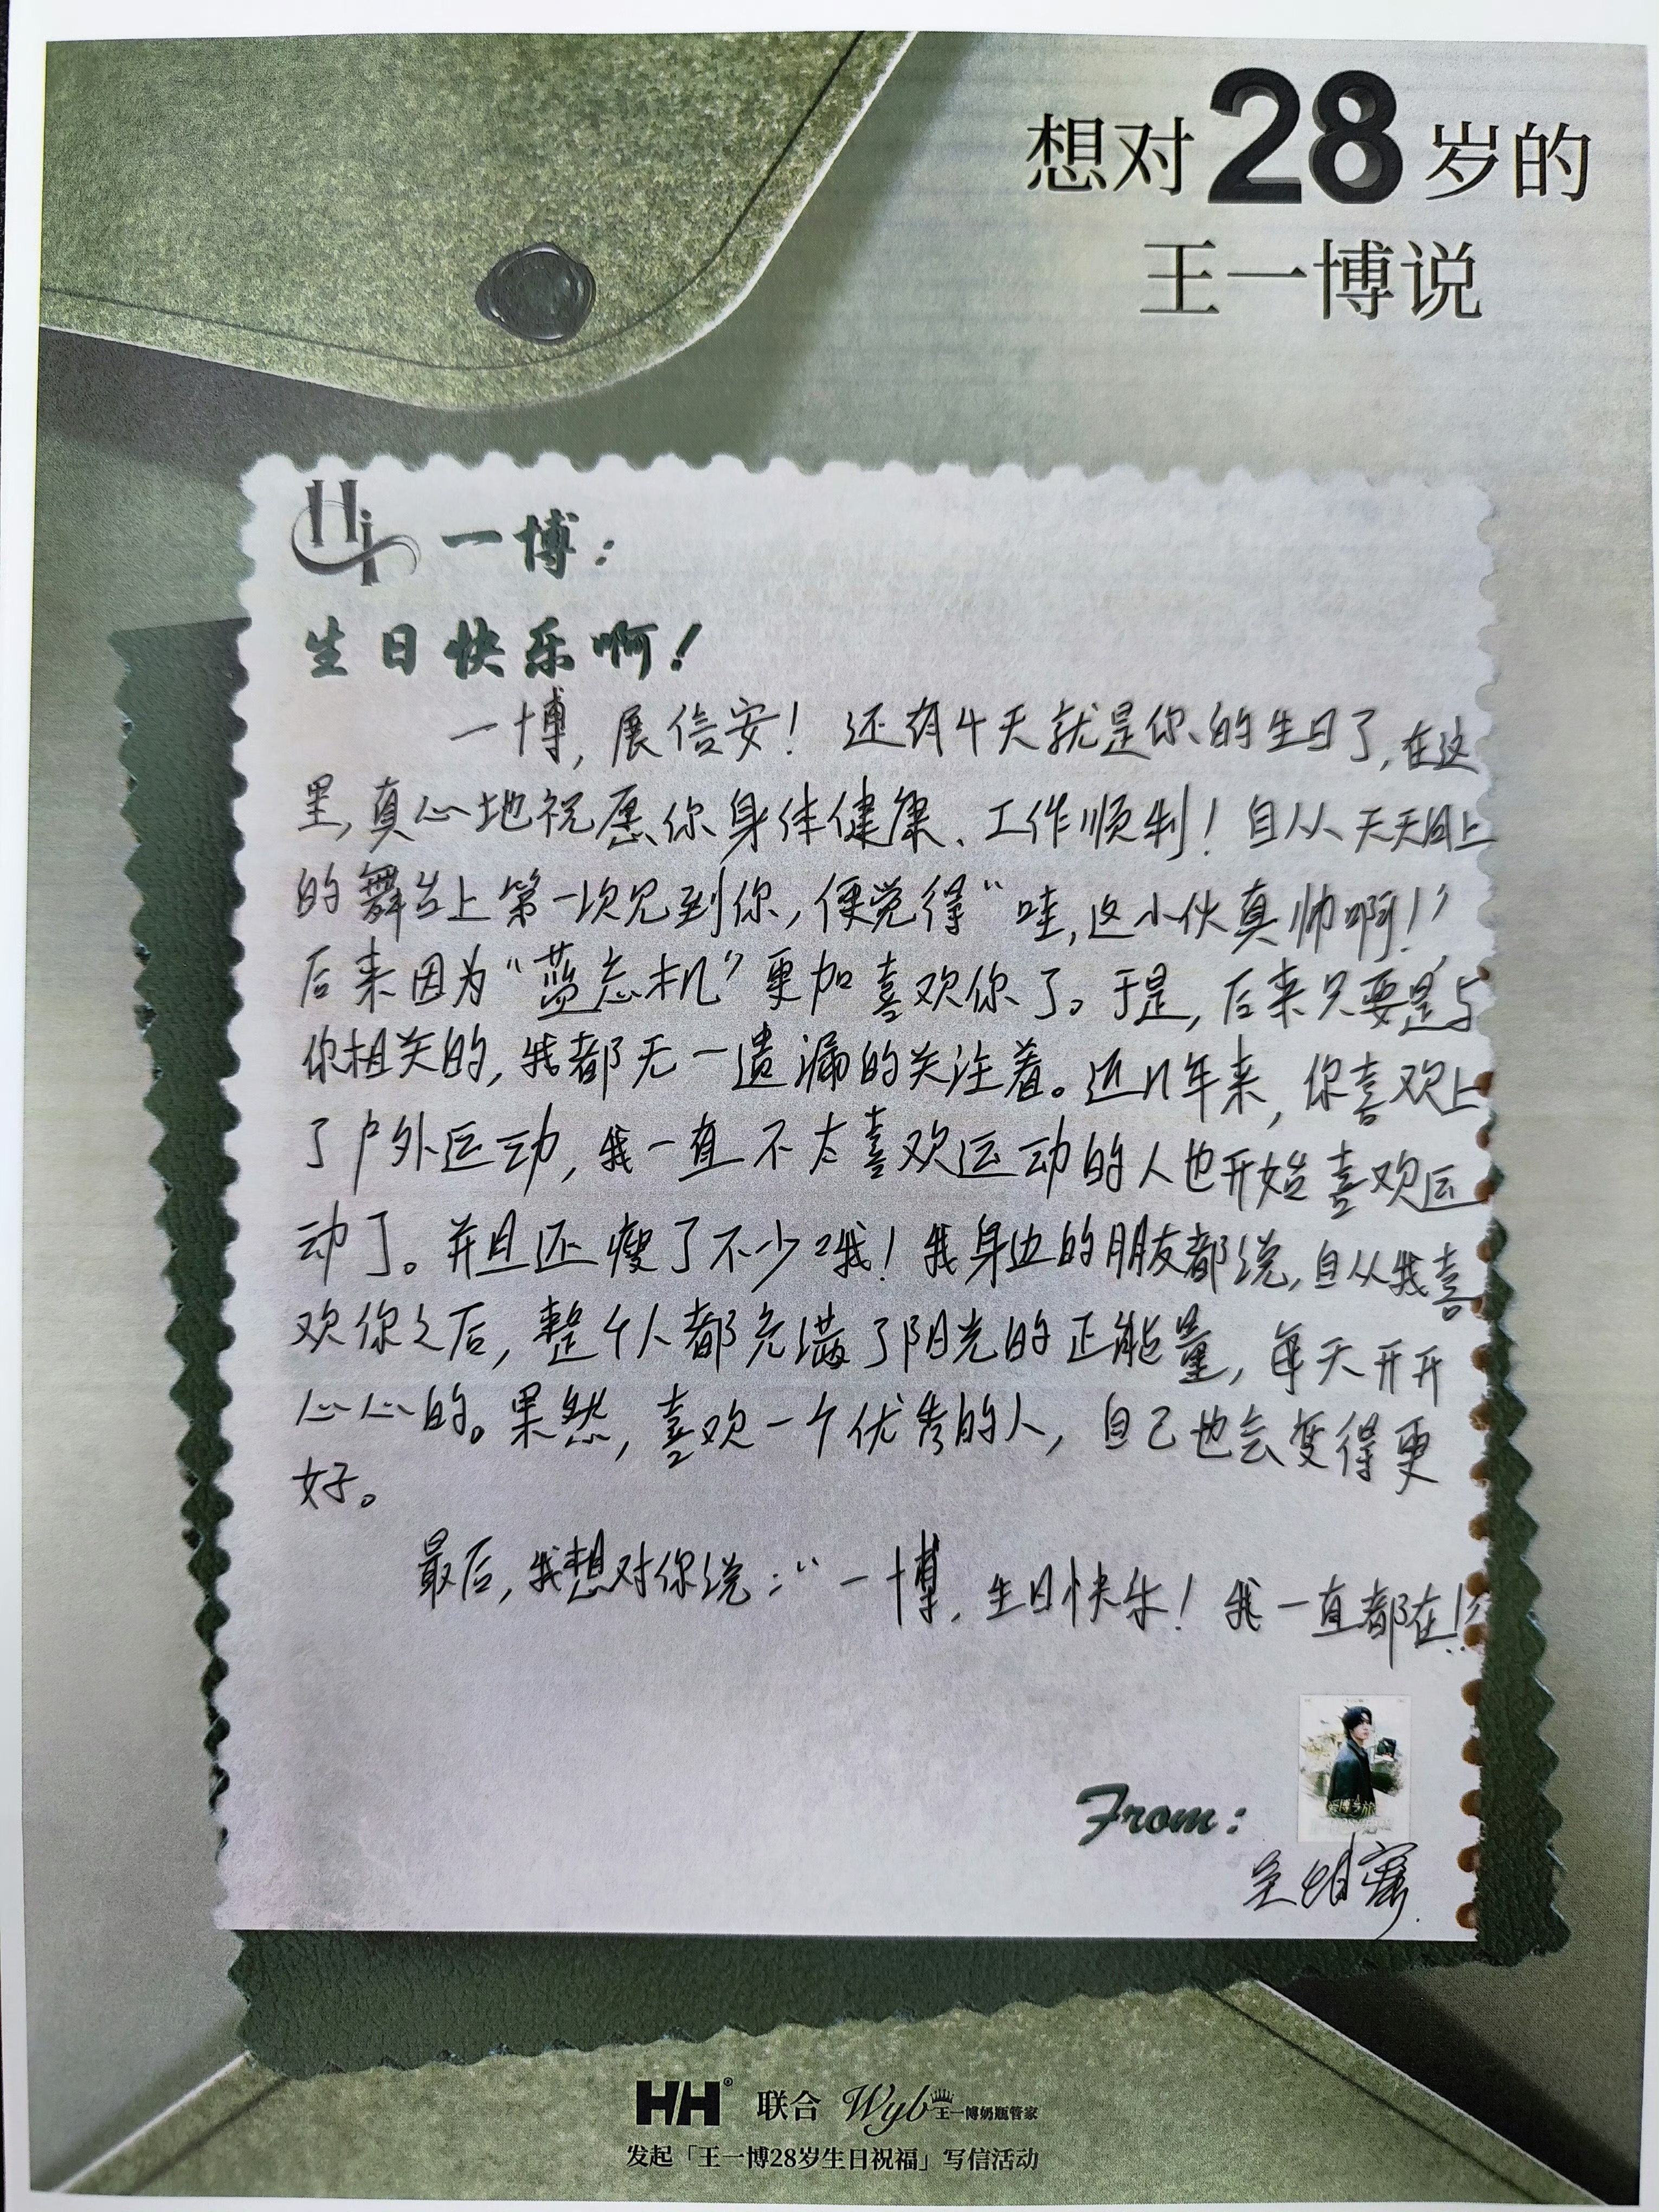 想对28岁的
王一博说
Hi 一博：
生日快乐啊！
一博，展信安！还有4天就是你的生日了，在这
里，真心地祝愿你身体健康、工作顺利！自从天天向上
的舞台上第一次见到你，便觉得“哇，这小伙真帅啊！”
后来因为“蓝忘机”更加喜欢你了。于是，后来只要是与
你相关的，我都无一遗漏的关注着。近几年来，你喜欢上
了户外运动，我一直不太喜欢运动的人也开始喜欢运
动了。并且还瘦了不少哦！我身边的朋友都说，自从我喜
欢你之后，整个人都充满了阳光的正能量，每天开开
心心的。果然，喜欢一个优秀的人，自己也会变得更
好。
最后，我想对你说：“一博，生日快乐！我一直都在！”
From：
HH® 联合 Wyb 王一博奶瓶管家
发起「王一博28岁生日祝福」写信活动